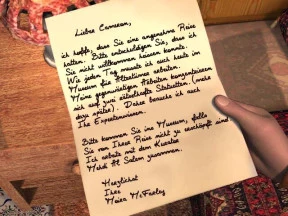 Liebe Cameron,
ich hoffe, dass Sie eine angenehme Reise
hatten. Bitte entschuldigen Sie, dass ich
Sie nicht willkommen heissen konnte.
Wie jeden Tag musste ich auch heute im
Museum für Altertümer arbeiten.
Meine gegenwärtigen Arbeiten konzentrieren
sich auf zwei rätselhafte Statuetten (mehr
dazu später). Daher brauche ich auch
Ihr Expertenwissen.
Bitte kommen Sie ins Museum, falls
Sie von Ihrer Reise nicht zu erschöpft sind.
Ich arbeite mit dem Kurator
Mehdi Al Salem zusammen.
Herzlichst
Ihre
Moira McFarley